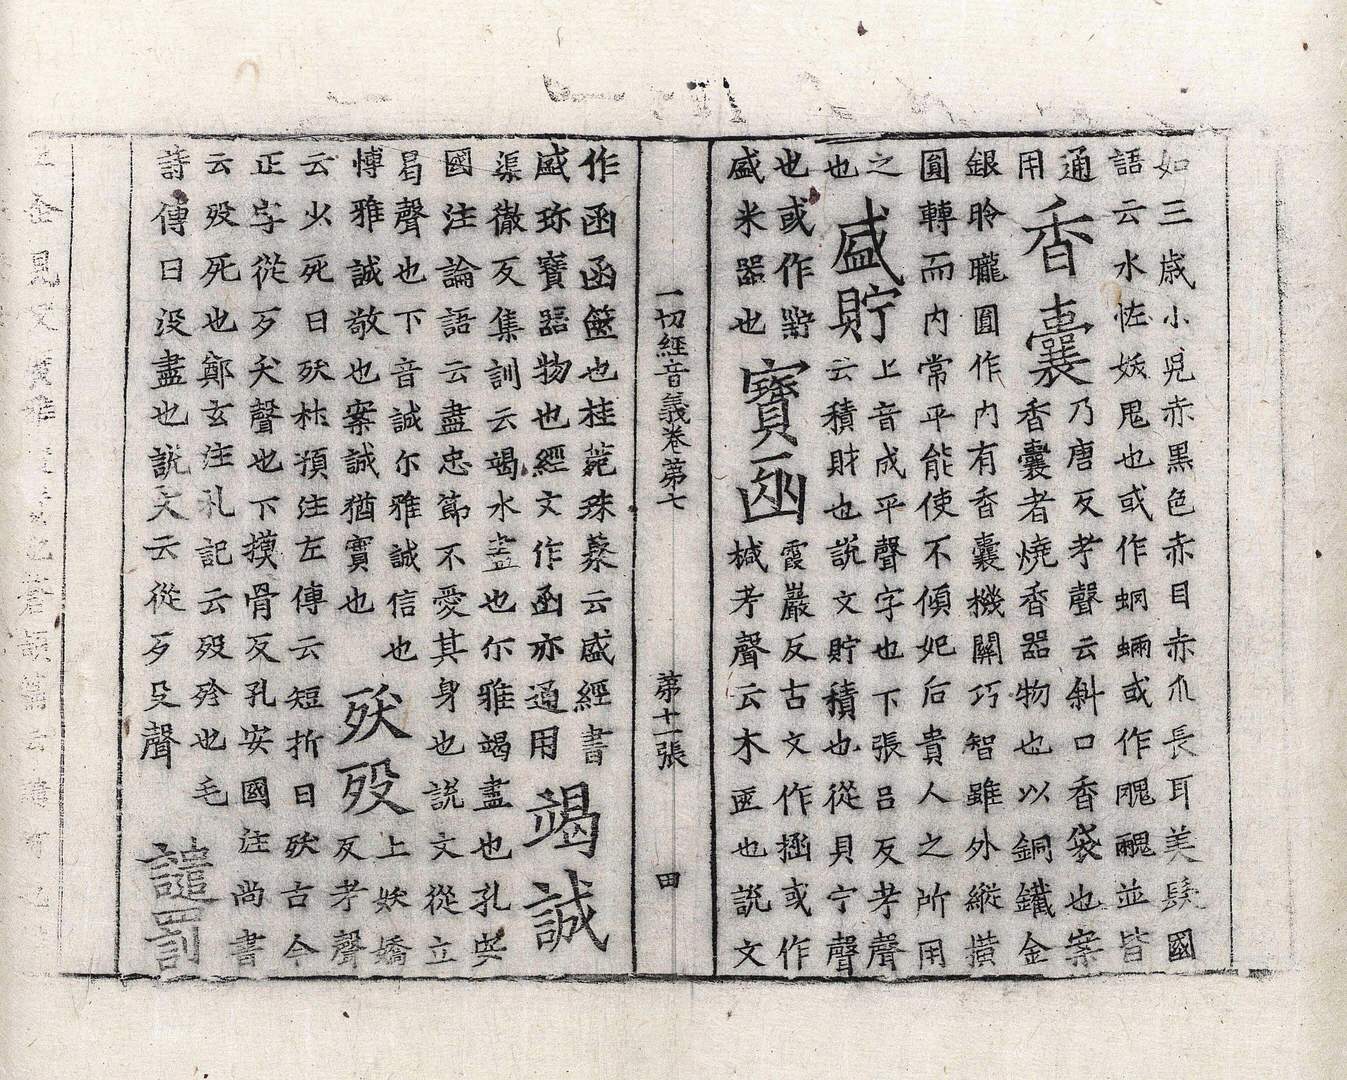 如三歲小兒赤黑色赤目赤爪長耳美髮國
語云水恠妖鬼也或作蛧蜽或作魍魎並皆
通
用香囊乃唐反考聲云斜口香袋也案
香囊者燒香器物也以銅鐵金
銀昤曨圓作內有香囊機關巧智雖外縱橫
圓轉而內常平能使不傾妃后貴人之所用
之
也盛貯上音成平聲字也下張呂反考聲
云積財也說文貯積也從貝宁聲
也或作㽄
盛米器也寶函霞巖反古文作㮀或作
椷考聲云木匣也說文
作函函篋也桂菀珠叢云盛經書
盛珎寶器物也經文作函亦通用竭誠
渠徹反集訓云竭水盡也尒雅竭盡也孔安
國注論語云盡忠節不愛其身也說文從立
曷聲也下音誠尒雅誠信也
愽雅誠敬也案誠猶實也殀歿上妖嬌
反考聲
云少死曰殀杜預注左傳云短折曰殀古今
正字從歹夭聲也下摸骨反孔安國注尚書
云歿死也鄭玄注礼記云歿終也毛
詩傳曰没盡也說文云從歹殳聲譴罰
一切經音義卷苐七 苐十一張 田